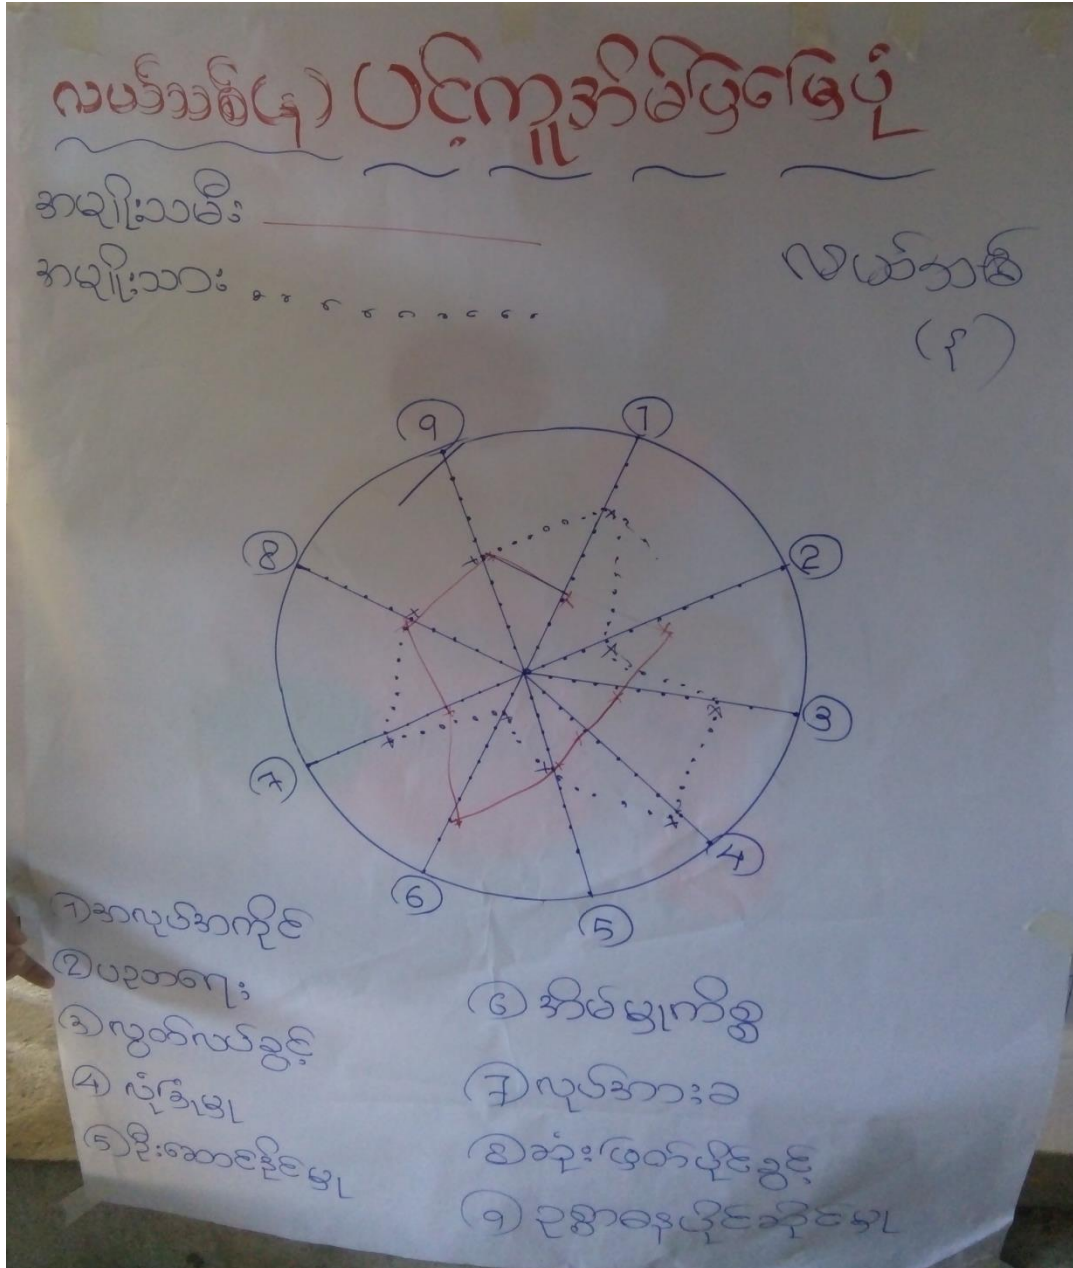 လယ်သစ်(န) ပင့်ကူအိမ်ပြမြေပုံ
အမျိုးသမီး
အမျိုးသား
လယ်သစ်
(န)
9
1
8
2
3
7
4
6
5
① အလုပ်အကိုင်
② ပညာရေး
③ လွတ်လပ်ခွင့်
④ လုံခြုံမှု
⑤ ဦးဆောင်နိုင်မှု
⑥ အိမ်မှုကိစ္စ
⑦ လုပ်အားခ
⑧ ဆုံးဖြတ်ပိုင်ခွင့်
⑨ ဥစ္စာဓနပိုင်ဆိုင်မှု